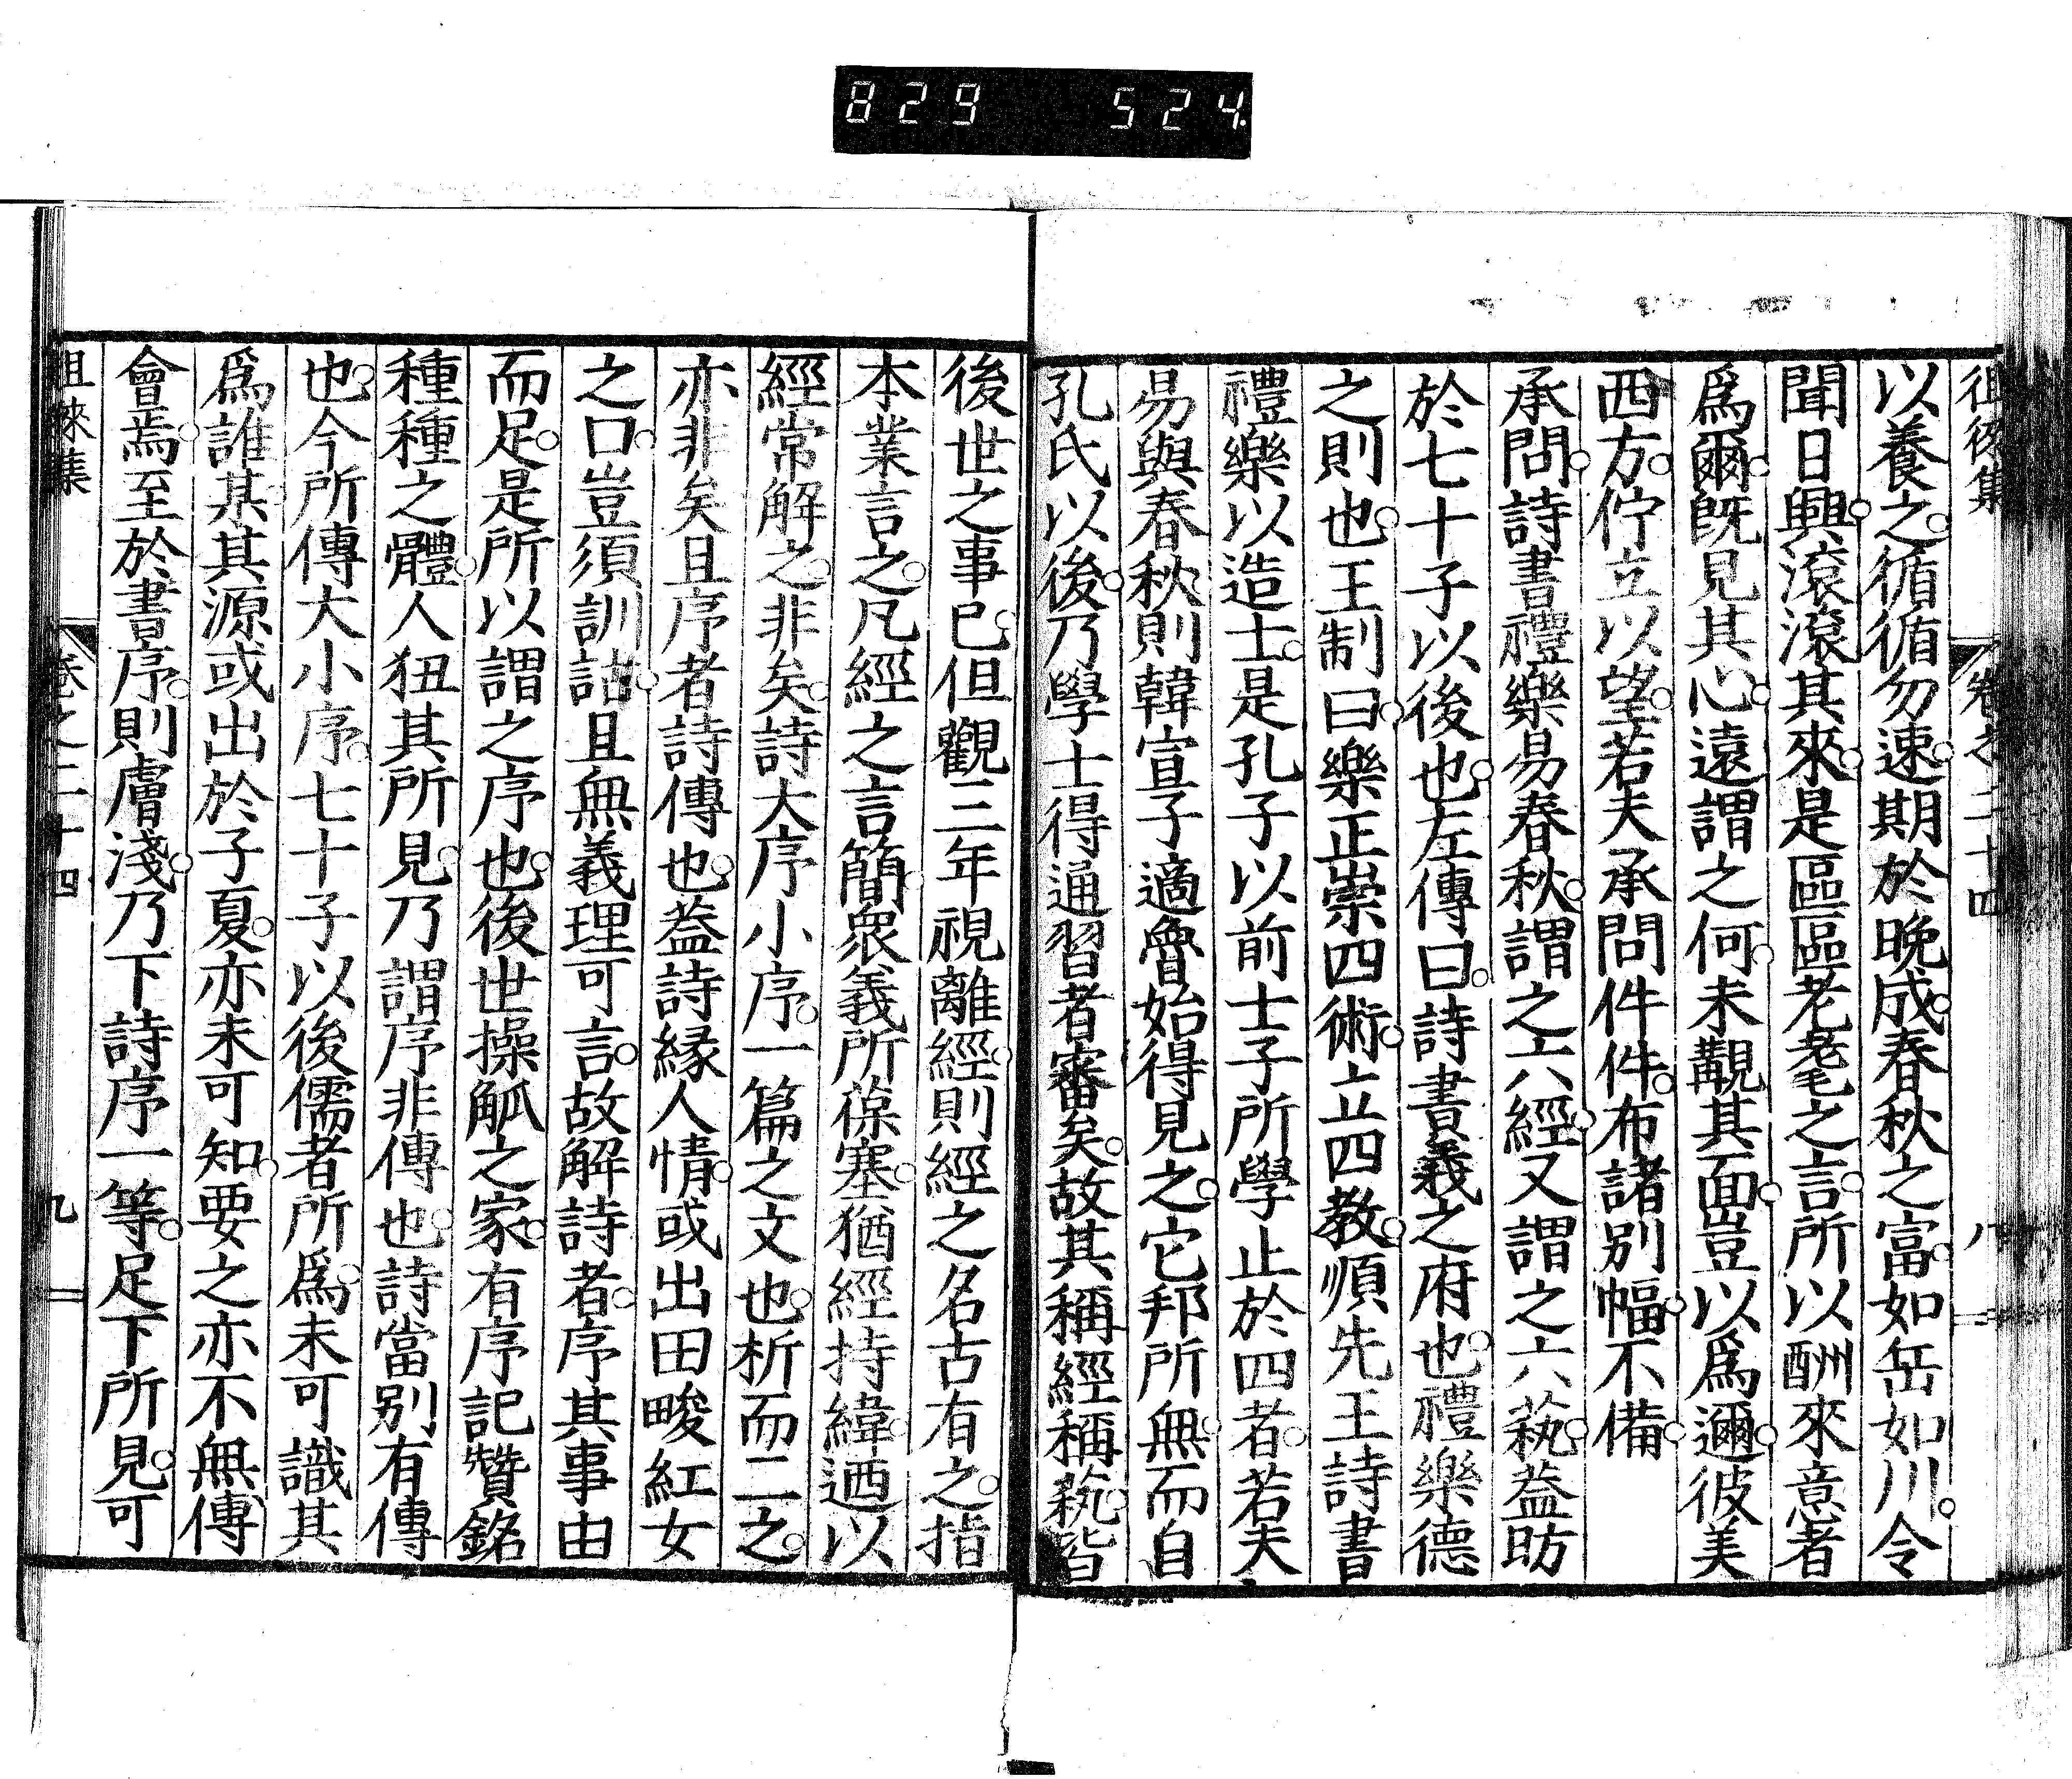 829 524
徂徠集 卷之二十四 八
以養之。循循勿速。期於晩成。春秋之富。如岳如川。令
聞日興。滾滾其來。是區區老耄之言。所以酬來意者
爲爾。旣見其心。遠謂之何。未覩其面。豈以爲邇。彼美
西方。佇立以望。若夫承問件件。布諸別幅。不備。
承問。詩書禮樂易春秋。謂之六經。又謂之六蓺。葢昉
於七十子以後也。左傳曰。詩書義之府也。禮樂德
之則也。王制曰。樂正崇四術。立四教。順先王詩書
禮樂以造士。是孔子以前士子所學止於四者。若夫
易與春秋。則韓宣子適魯始得見之。它邦所無。而自
孔氏以後。乃學士得通習者審矣。故其稱經稱蓺。皆
後世之事已。但觀三年視離經。則經之名古有之。指
本業言之。凡經之言簡。衆義所葆塞。猶經持緯。迺以
經常解之。非矣。詩大序小序。一篇之文也。析而二之。
亦非矣。且序者詩傳也。葢詩緣人情。或出田畯紅女
之口。豈須訓詁。且無義理可言。故解詩者。序其事由
而足。是所以謂之序也。後世操觚之家。有序記贊銘
種種之體。人狃其所見。乃謂序非傳也。詩當別有傳
也。今所傳大小序。七十子以後儒者所爲。未可識其
爲誰某。其源或出於子夏。亦未可知。要之亦不無傳
會焉。至於書序。則膚淺。乃下詩序一等。足下所見。可
徂徠集 卷之二十四 九